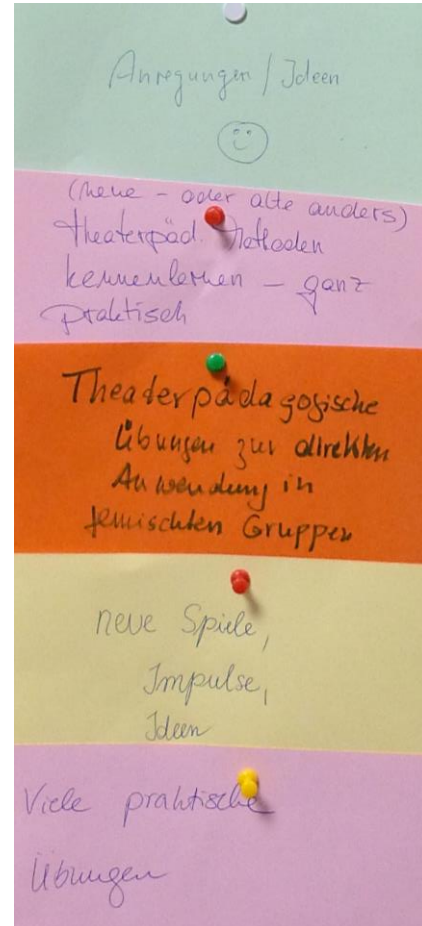 Anregungen / Ideen
(neue - oder alte anders)
theaterpäd. Methoden
kennenlernen - ganz
praktisch
Theaterpädagogische
Übungen zur direkten
Anwendung in
gemischten Gruppen
neue Spiele,
Impulse,
Ideen
Viele praktische
Übungen